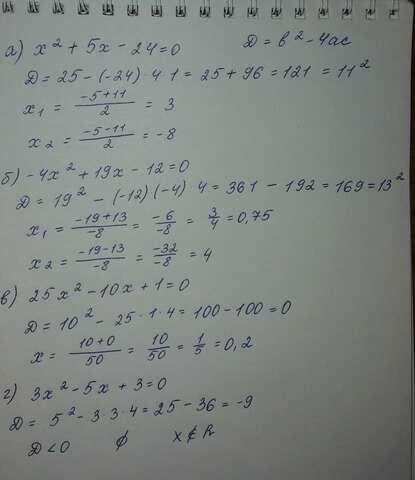 а) x² + 5x - 24 = 0 D = в² - 4ac
D = 25 - (-24) · 4 · 1 = 25 + 96 = 121 = 11²
x₁ = (-5+11)/2 = 3
x₂ = (-5-11)/2 = -8
б) -4x² + 19x - 12 = 0
D = 19² - (-12)(-4) · 4 = 361 - 192 = 169 = 13²
x₁ = (-19+13)/-8 = -6/-8 = 3/4 = 0,75
x₂ = (-19-13)/-8 = -32/-8 = 4
в) 25x² - 10x + 1 = 0
D = 10² - 25 · 1 · 4 = 100 - 100 = 0
x = (10+0)/50 = 10/50 = 1/5 = 0,2
г) 3x² - 5x + 3 = 0
D = 5² - 3 · 3 · 4 = 25 - 36 = -9
D < 0 ∅ x ∉ R